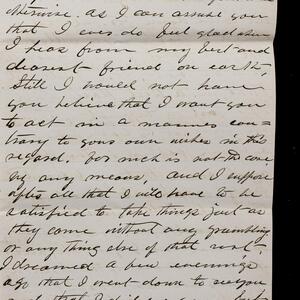 otherwise. as I can assure you
that I ever do feel glad when
I hear from my best and
dearest friend on earth,
Still I would not have
you believe that I want you
to act in a manner con-
trary to your own wishes in this
regard. for such is not the case
by any means, and I suppose
after all that I will have to be
satisfied to take things just as
they come without any grumbling
or any thing else of that sort.
I dreamed a few evenings
ago that I went down to see you
that I did